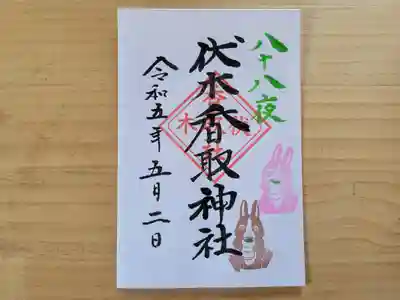 八十八夜
伏木香取神社
令和五年五月二日